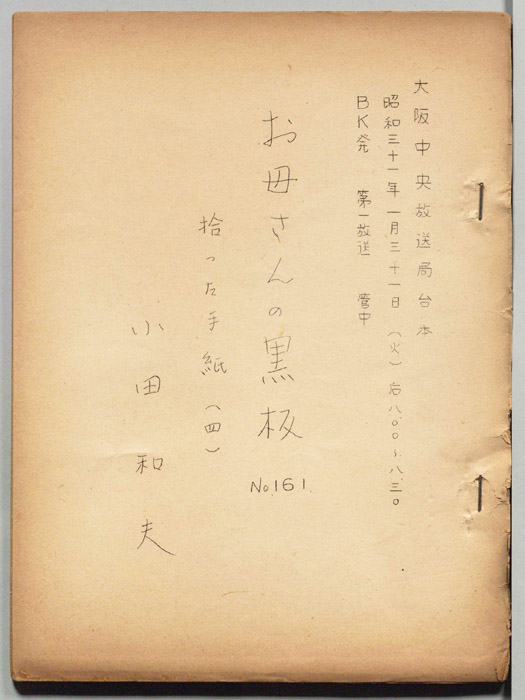 大阪中央放送局台本
昭和三十一年一月三十一日（火）后八.〇〇～八.三〇
BK発 第一放送 管中
お母さんの黒板 No.161.
拾った手紙（四）
小田和夫